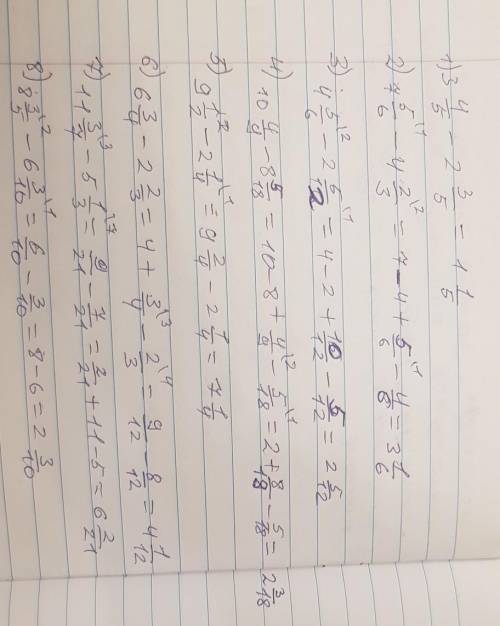 1) 3 4/5 - 2 3/5 = 1 1/5
2) 7 5/6 \1 - 4 2/3 \2 = 7 - 4 + 5/6 \1 - 4/6 = 3 1/6
3) 4 5/6 \2 - 2 5/12 \1 = 4 - 2 + 10/12 - 5/12 = 2 5/12
4) 10 4/9 - 8 5/18 = 10 - 8 + 4/9 \2 - 5/18 \1 = 2 + 8/18 - 5/18 = 2 3/18
5) 9 1/2 \2 - 2 1/4 \1 = 9 2/4 - 2 1/4 = 7 1/4
6) 6 3/4 - 2 2/3 = 4 + 3/4 \3 - 2/3 \4 = 9/12 - 8/12 = 4 1/12
7) 11 3/7 \3 - 5 1/3 \7 = 9/21 - 7/21 = 2/21 + 11 - 5 = 6 2/21
8) 8 3/5 \2 - 6 3/10 \1 = 6/10 - 3/10 = 8 - 6 = 2 3/10